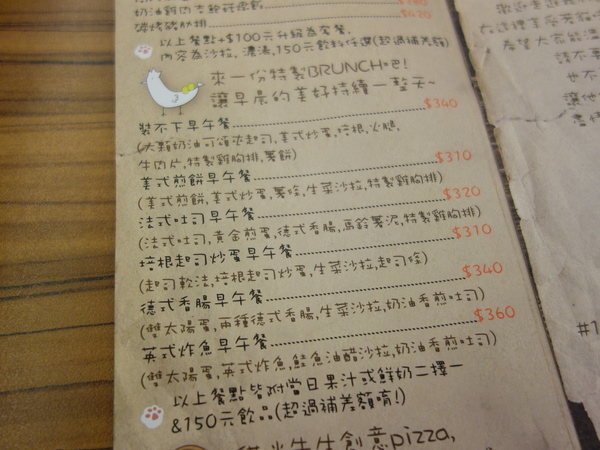 以上餐點+$100元升級為套餐,
內容為沙拉,濃湯,150元飲料任選(超過補差額)
來一份特製BRUNCH吧!
讓早晨的美好持續一整天~
裝不下早午餐 $340
(大顆奶油可頌夾起司,美式炒蛋,培根,火腿,
牛肉片,特製雞胸排,薯餅)
美式煎餅早午餐 $310
(美式煎餅,美式炒蛋,薯條,生菜沙拉,特製雞胸排)
法式吐司早午餐 $320
(法式吐司,黃金煎蛋,德式香腸,馬鈴薯泥,特製雞胸排)
培根起司炒蛋早午餐 $310
(起司軟法,培根起司炒蛋,生菜沙拉,起司條)
德式香腸早午餐 $340
(雙太陽蛋,兩種德式香腸,生菜沙拉,奶油香煎吐司)
英式炸魚早午餐 $360
(雙太陽蛋,英式炸魚,鮭魚油醋沙拉,奶油香煎吐司)
以上餐點皆附當日果汁或鮮奶二擇一
&150元飲品(超過補差額唷!)
創意pizza,